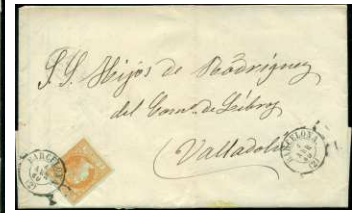 S.S. Hijos de Rodríguez
del Com.º de Libros
Valladolid
BARCELONA
BARCELONA